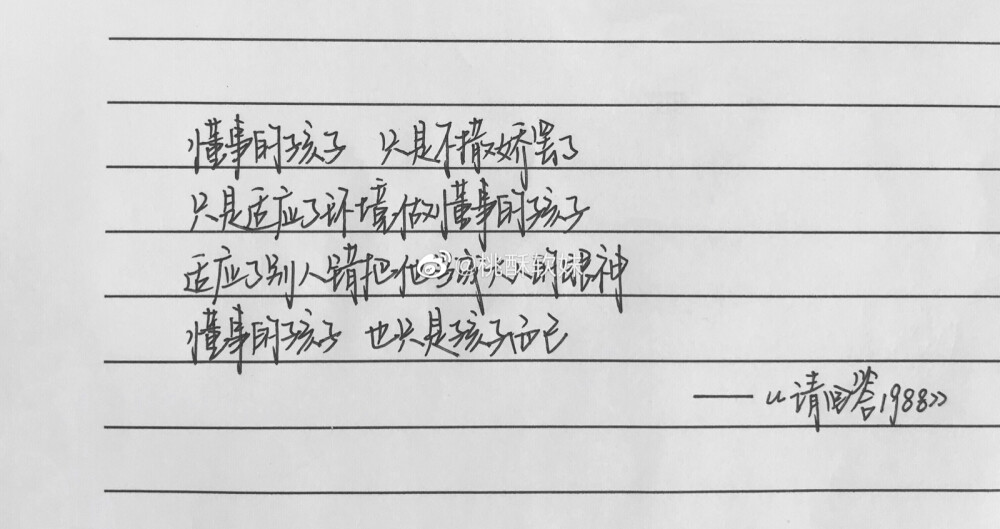 懂事的孩子 只是不撒娇罢了
只是适应了环境做懂事的孩子
适应了别人错把他当大人的眼神
懂事的孩子 也只是孩子而已
——《请回答1988》
@桃酥软妹